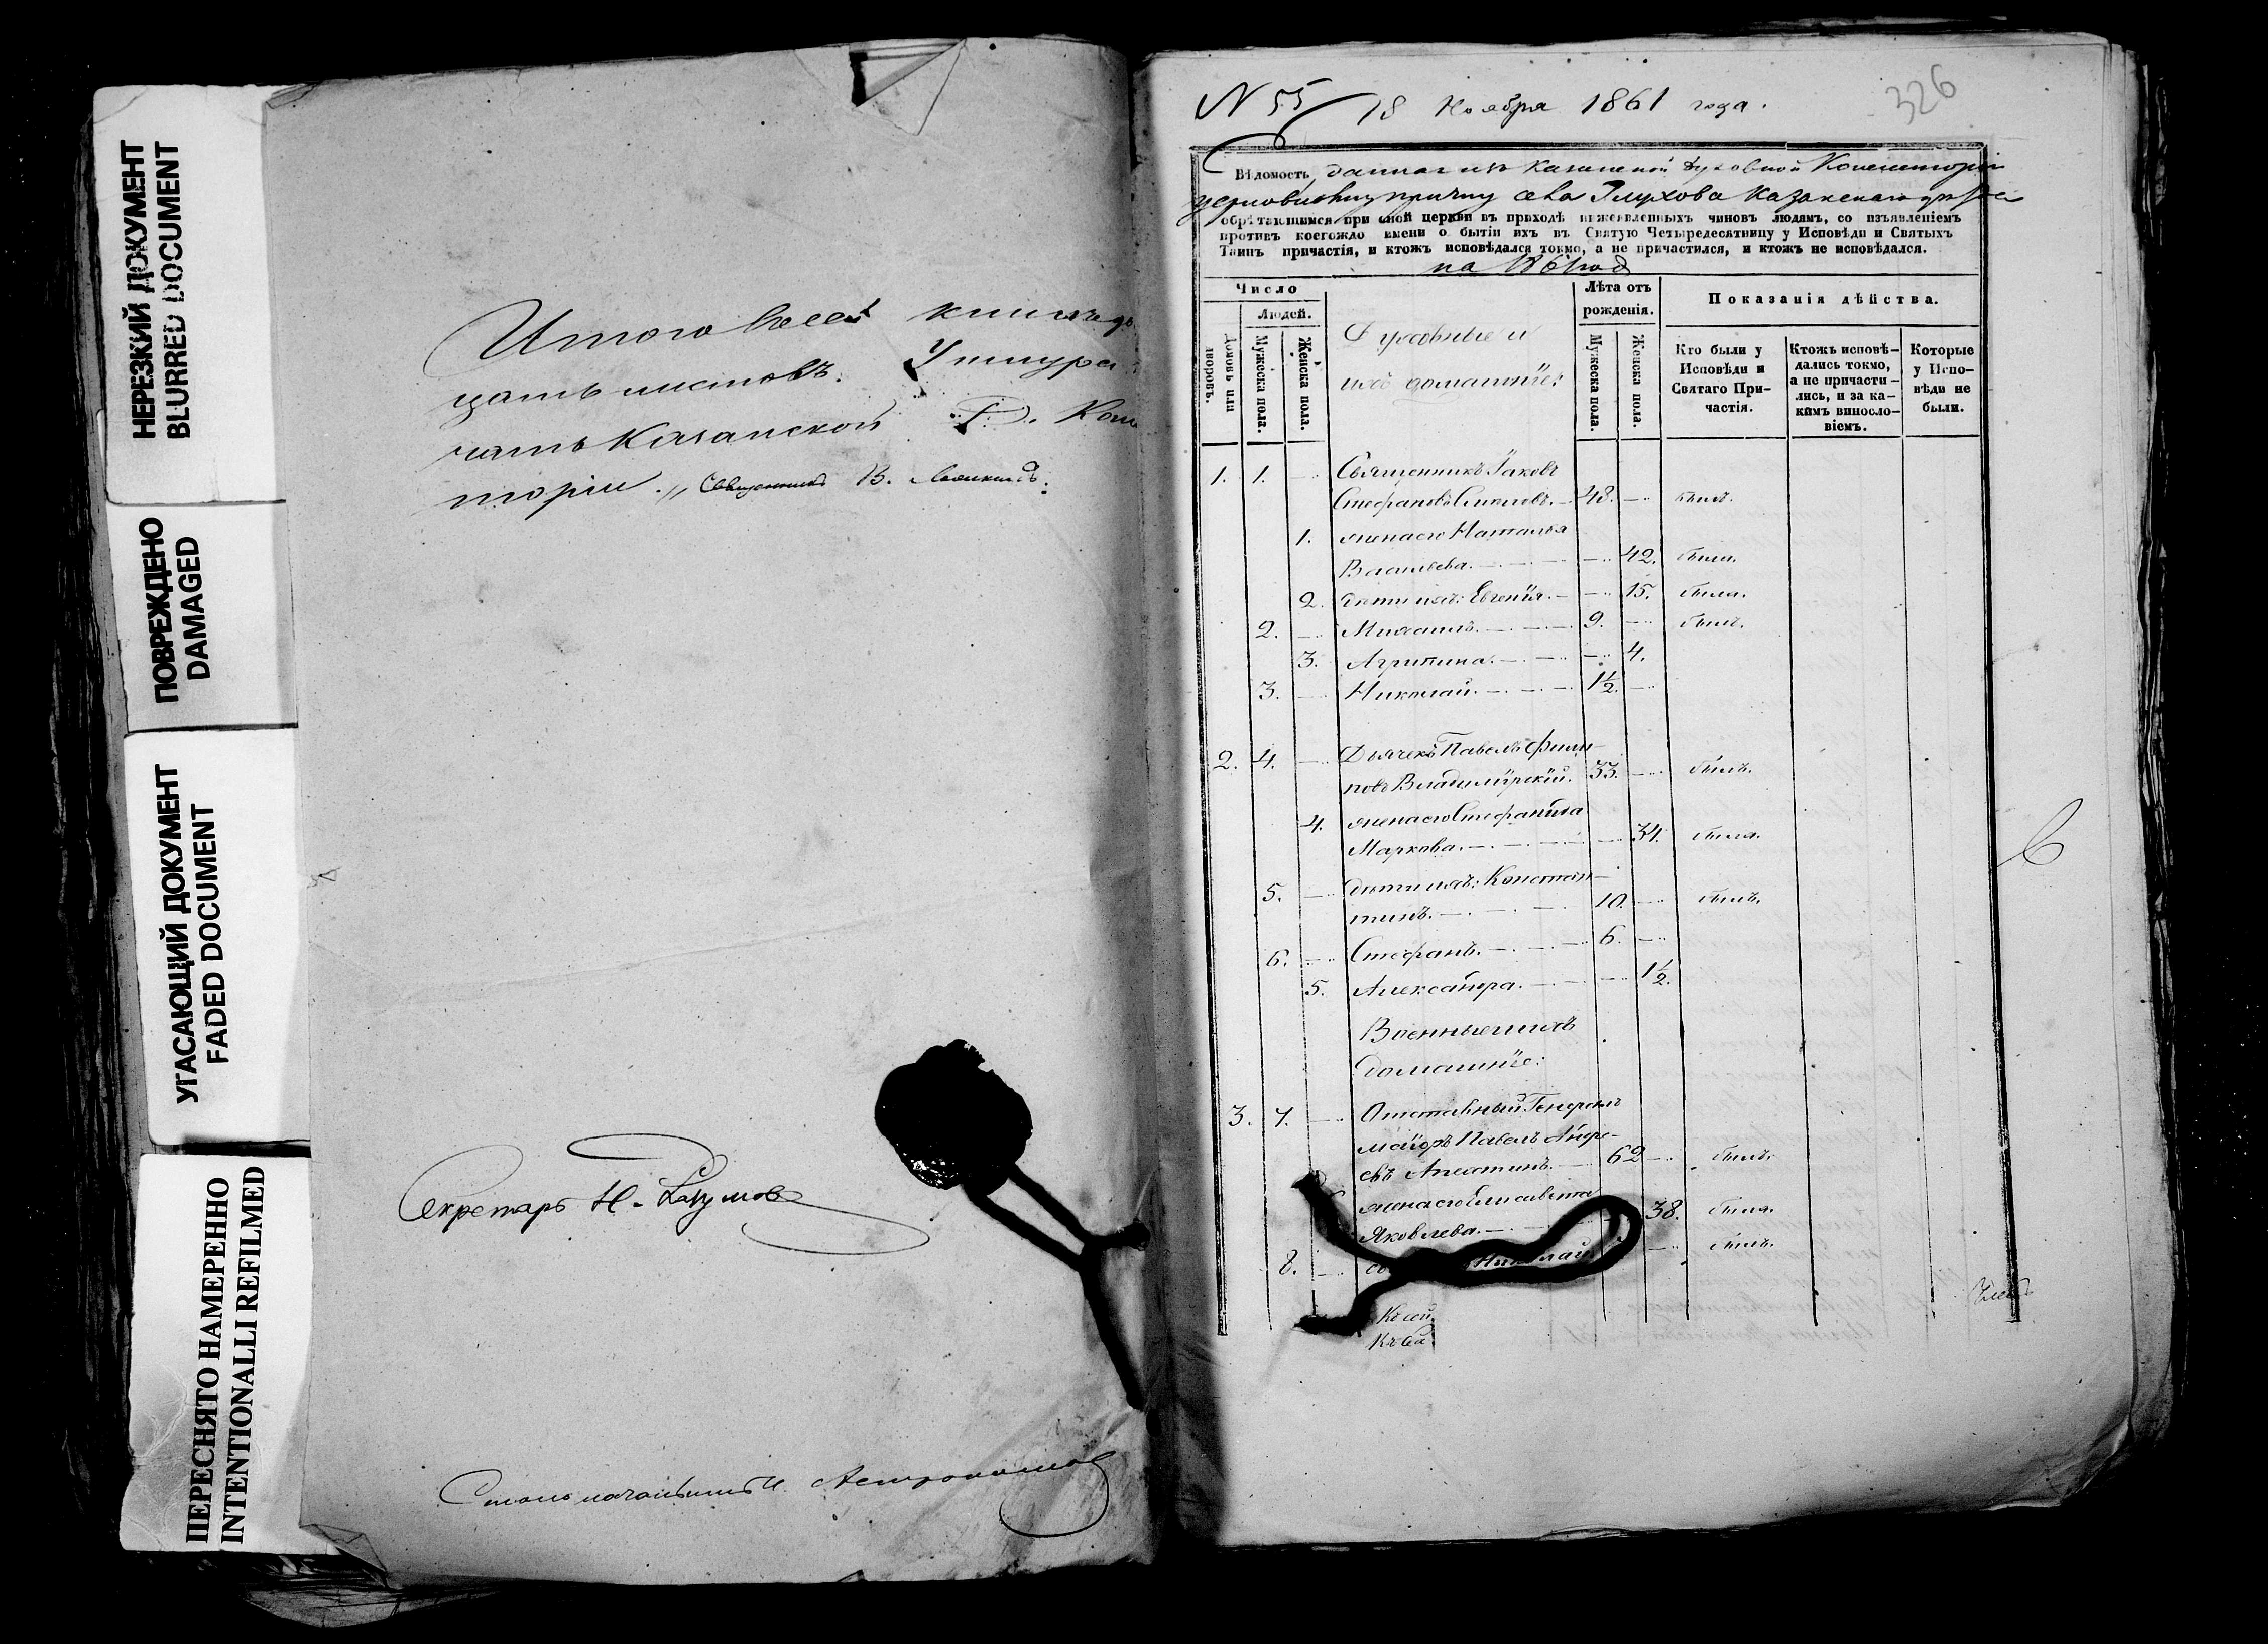 НЕРЕЗКИЙ ДОКУМЕНТ
BLURRED DOCUMENT
ПОВРЕЖДЕНО
DAMAGED
УГАСАЮЩИЙ ДОКУМЕНТ
FADED DOCUMENT
ПЕРЕСНЯТО НАМЕРЕННО
INTENTIONALLI REFILMED
Итого в сей книге
цать листовъ.
чать Казанской Д. Кон
торіи. Священникъ В.
Секретарь Н. Разумовъ
Столоначальникъ
N 55 18 Ноября 1861 года.
326
Вѣдомость, данная изъ Казанской Духовной Консисторіи
причту села Глухова Казанскаго уѣзда
обрѣтающимся при оной церкви въ приходѣ нижеявленныхъ чиновъ людямъ, со изъявленіемъ
противъ коегождо имени о бытіи ихъ въ Святую Четыредесятницу у Исповѣди и Святыхъ
Таинъ причастія, и ктожъ исповѣдался токмо, а не причастился, и ктожъ не исповѣдался.
на 1861 год
Число
Домовъ или дворовъ.
Людей.
Мужеска пола.
Женска пола.
Духовные и
ихъ домашніе:
Лѣта отъ
рожденія.
Мужеска пола.
Женска пола.
Показанія дѣйства.
Кто были у
Исповѣди и
Святаго При-
частія.
Ктожъ исповѣ-
дались токмо,
а не причасти-
лись, и за ка-
кимъ винosло-
віемъ.
Которые
у Испо-
вѣди не
были.
1. 1. — Священникъ Іаковъ
Стефановъ 48. — былъ.
1. жена его Наталья
Васильева. — 42. была.
2. дѣти ихъ: Евгенія. — 15. была.
2. — Михаилъ. 9. — былъ.
3. Агрипина. — 4.
3. — Николай. 1½. —
2. 4. — Дьячекъ Павелъ Филип-
повъ Владимірскій. 33. — былъ.
4. жена его Стефанида
Маркова. — 34. была.
5. — дѣти ихъ: Констан-
тинъ. 10. — былъ.
6. — Стефанъ. 6. —
5. Александра. — 1½.
Военные и ихъ
домашніе:
3. 7. — Отставный Генералъ
маіоръ Павелъ Андре-
евъ 62 — былъ.
жена его Елисавета
Яковлева. 38. была.
8. — Николай — былъ.
Къ сей